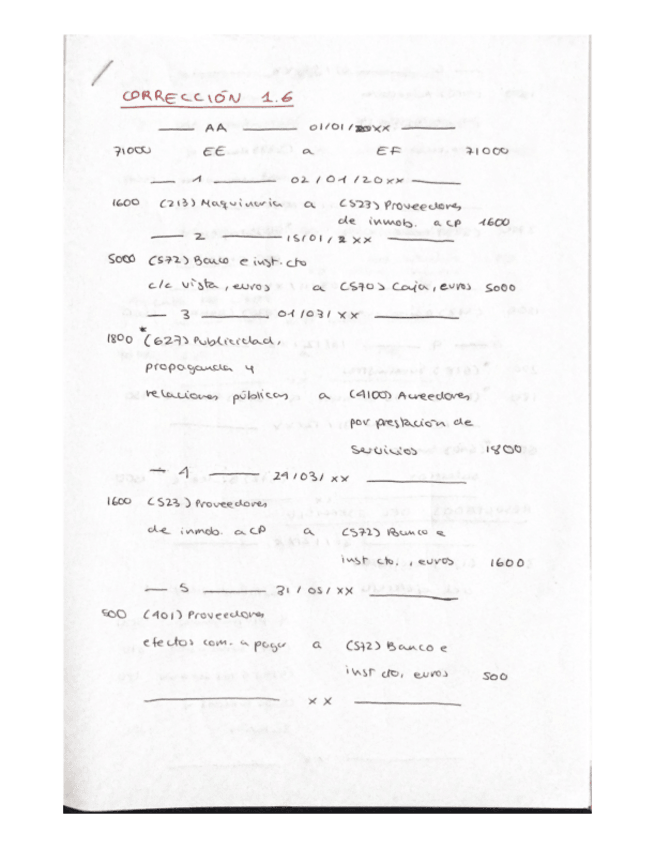 CORRECCIÓN 1.6
AA 01/01/20xx
71000 EE a EF 71000
1 02/01/20xx
1600 (213) Maquinaria a (523) Proveedores
de inmob. a CP 1600
2 15/01/2xx
5000 (572) Banco e inst. cto
c/c vista, euros a (570) Caja, euros 5000
3 01/03/xx
1800 *(627) Publicidad,
propaganda y
relaciones públicas a (4100) Acreedores
por prestación de
servicios 1800
4 29/03/xx
1600 (523) Proveedores
de inmob. a CP a (572) Banco e
inst cto., euros 1600
5 31/05/xx
500 (401) Proveedores
efectos com. a pagar a (572) Banco e
inst cto, euros 500
x x